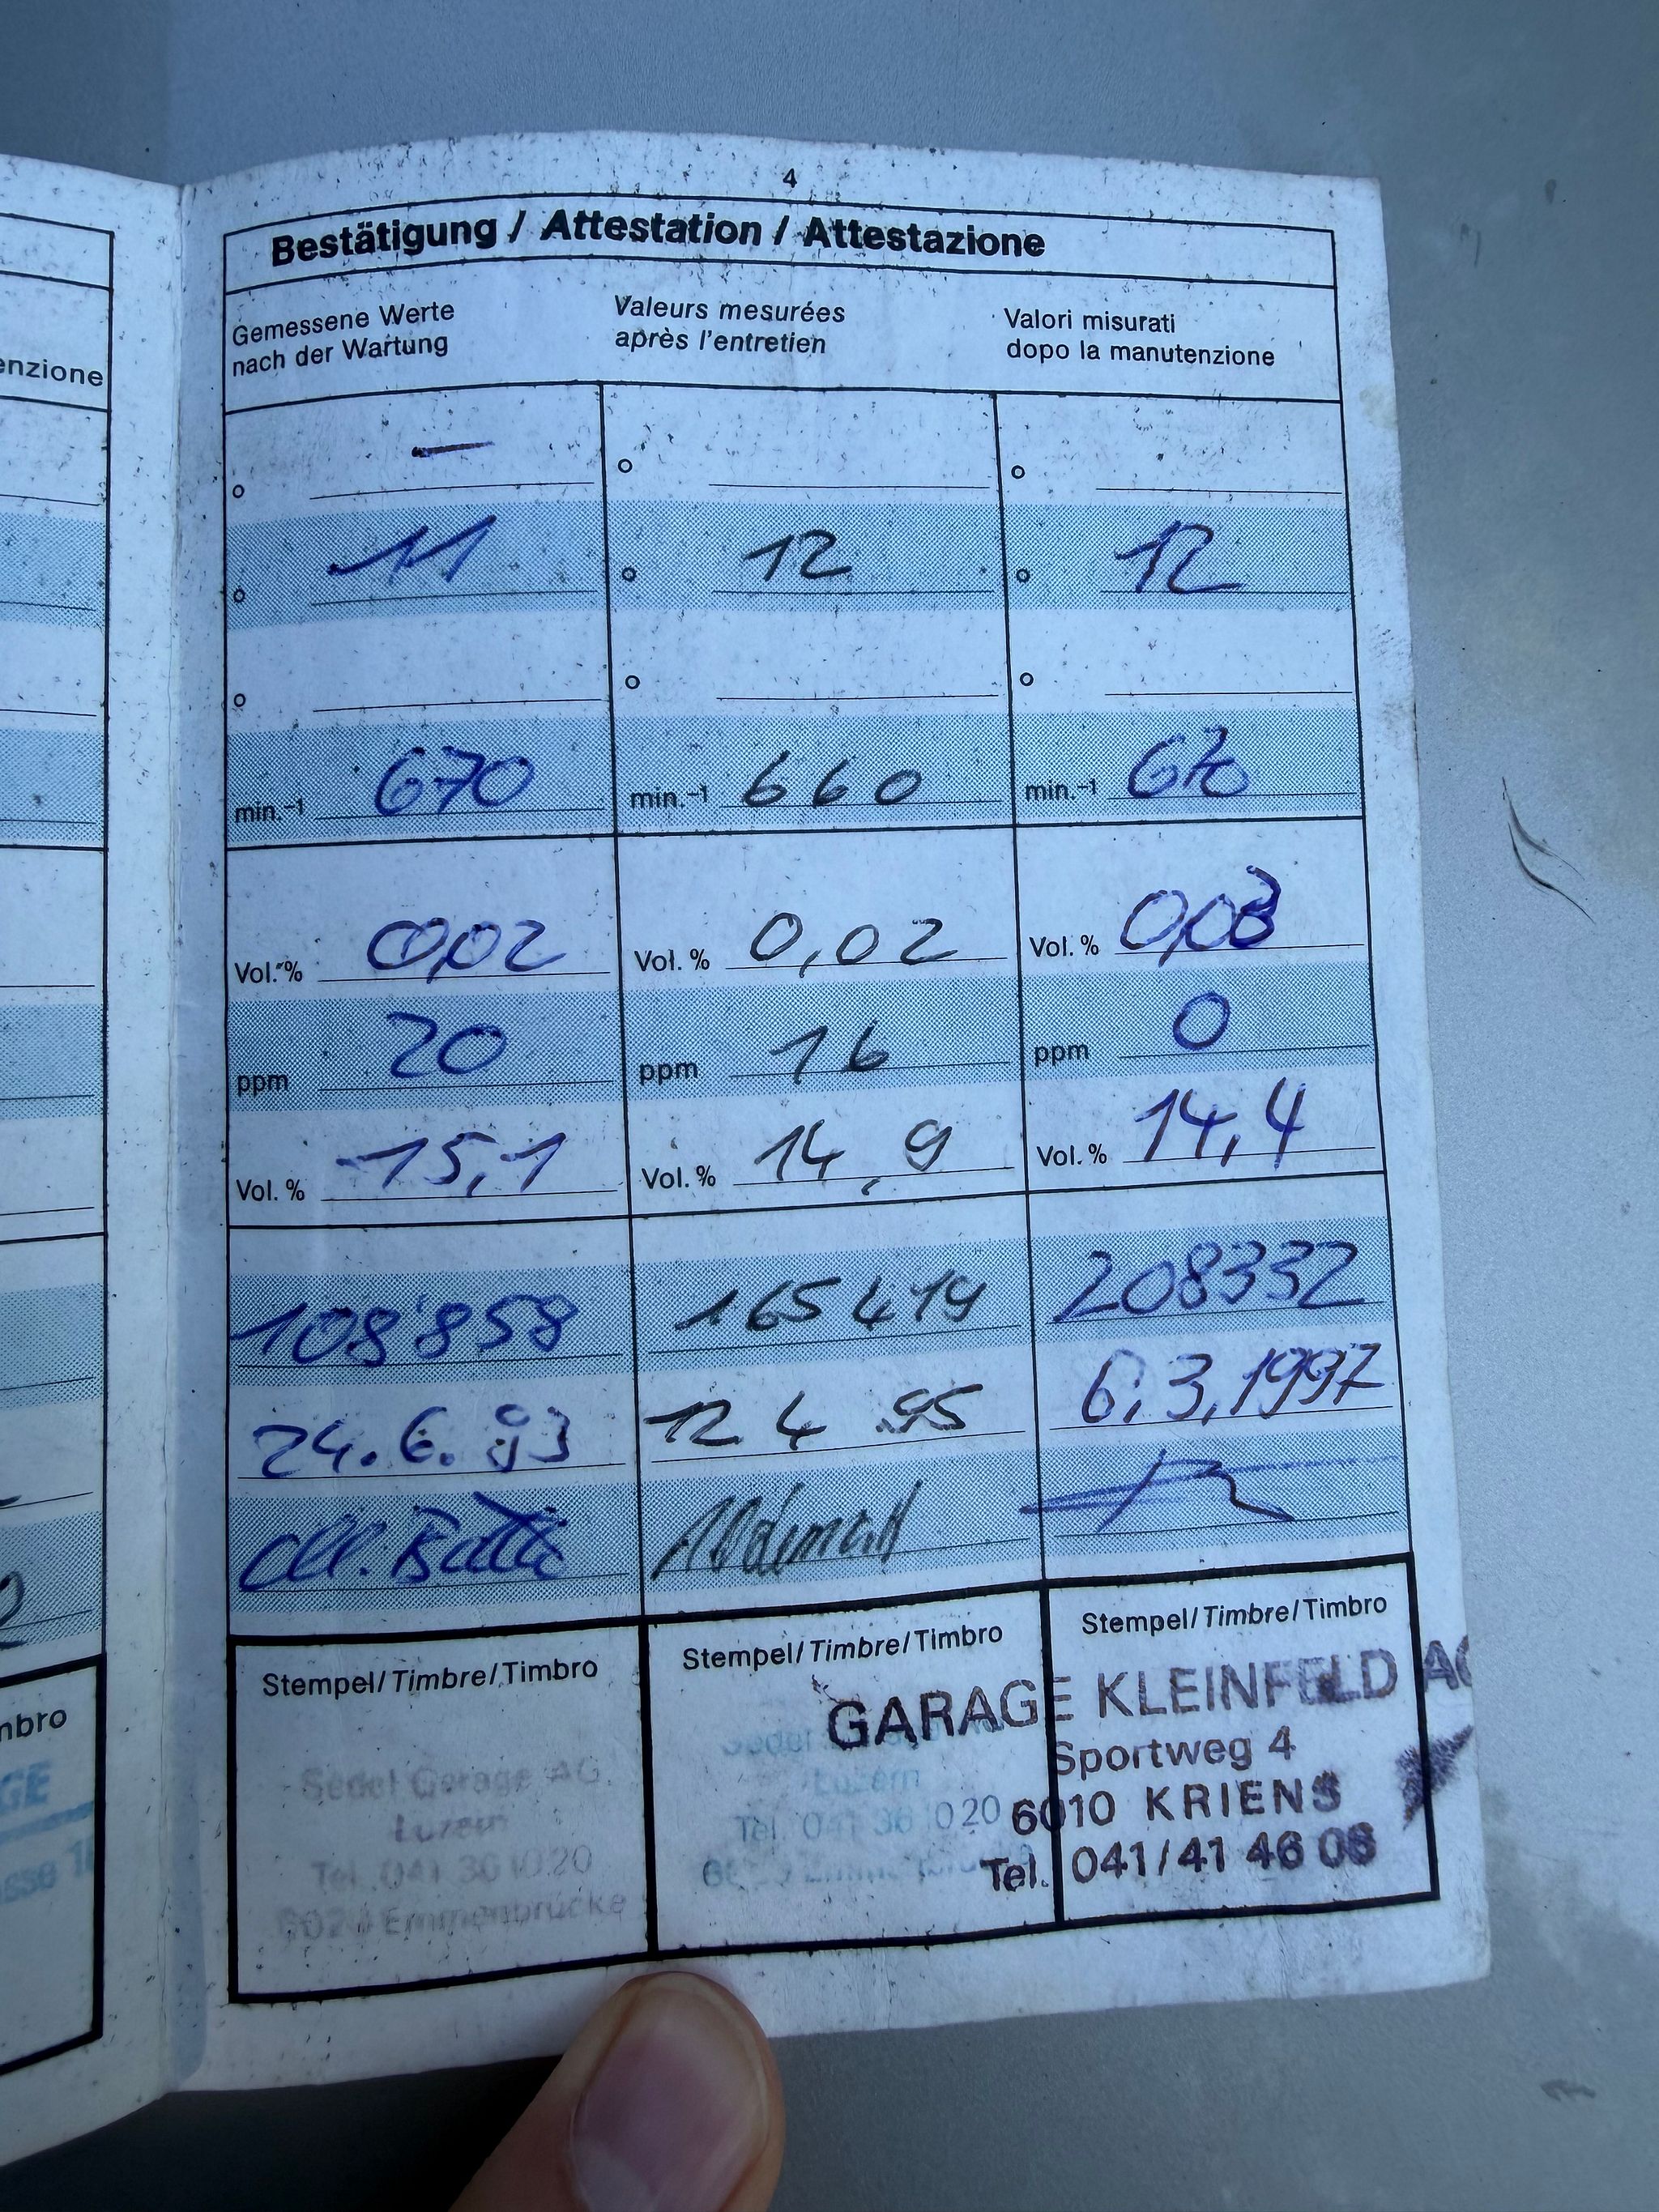 4
Bestätigung / Attestation / Attestazione
Gemessene Werte
nach der Wartung
Valeurs mesurées
après l'entretien
Valori misurati
dopo la manutenzione
enzione
° — ° °
° 11 ° 12 ° 12
° ° °
min.⁻¹ 670 min.⁻¹ 660 min.⁻¹
Vol.% 0,02 Vol. % 0,02 Vol. % 0,03
ppm 20 ppm 16 ppm 0
Vol. % 15,1 Vol. % 14,9 Vol. % 14,4
108'858 165419 208332
24.6.93 12 4 95 6.3.1997
Stempel/Timbre/Timbro
Sedel Garage AG
Luzern
Tel. 041 36 10 20
6020 Emmenbrücke
Stempel/Timbre/Timbro
Luzern
Tel. 041 36 10 20
Stempel/Timbre/Timbro
GARAGE KLEINFELD AG
Sportweg 4
6010 KRIENS
Tel. 041/41 46 06
mbro
GE
sse